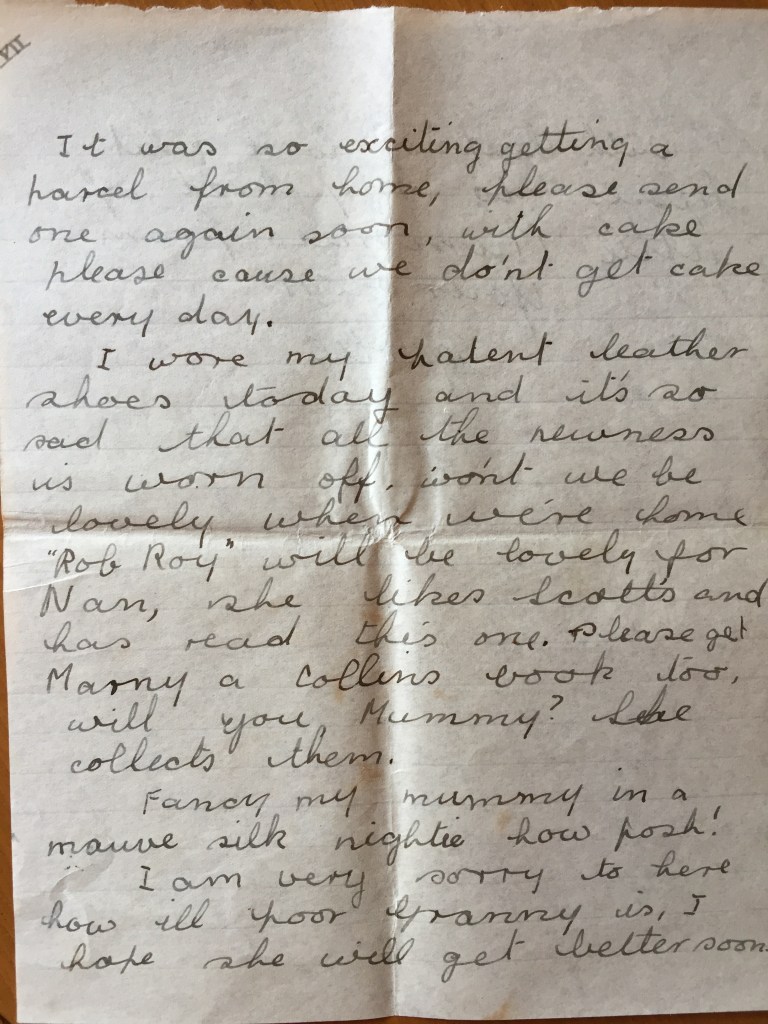 VII
It was so exciting getting a
parcel from home, please send
one again soon, with cake
please cause we do'nt get cake
every day.
I wore my patent leather
shoes today and it's so
sad that all the newness
is worn off. wo'nt we be
lovely when we're home
"Rob Roy" will be lovely for
Nan, she likes Scott's and
has read this one. Please get
Marny a Collins book too,
will you, Mummy? She
collects them.
Fancy my mummy in a
mauve silk nightie how posh!
I am very sorry to here
how ill poor Granny is, I
hope she will get better soon.